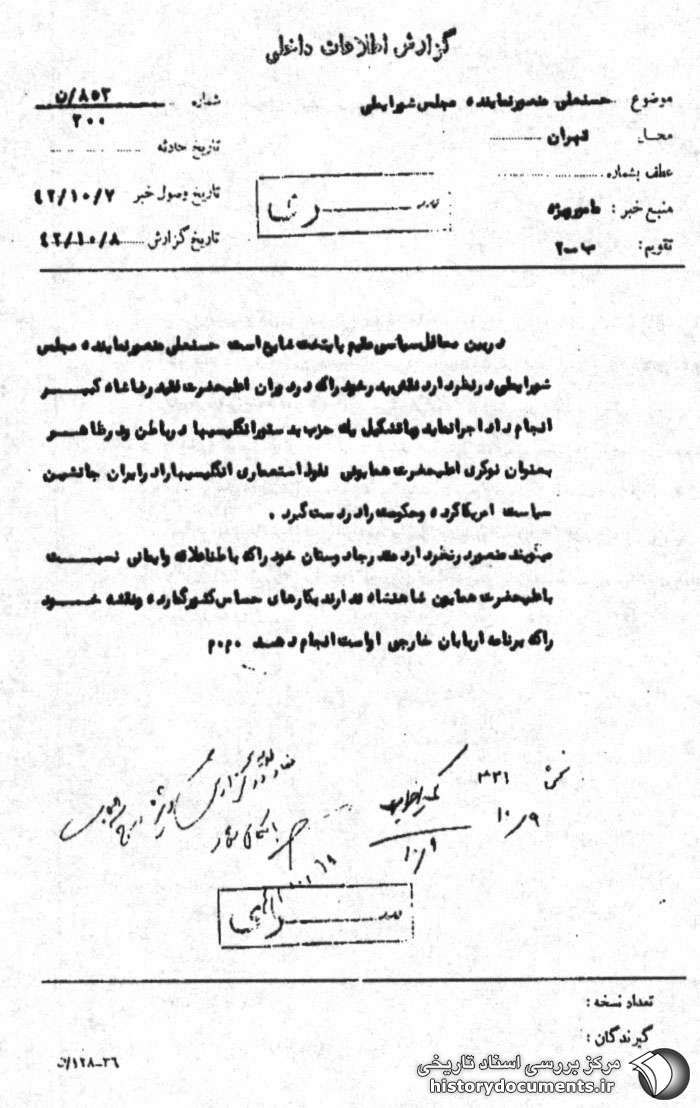 گزارش اطلاعات داخلی
موضوع حسنعلی منصور نماینده مجلس شورایملی
شماره ۸۵۲/ن
۲۰۰
محل تهران
تاریخ حادثه
عطف بشماره
تاریخ وصول خبر ۴۲/۱۰/۷
منبع خبر : مامور ویژه
تاریخ گزارش ۴۲/۱۰/۸
تقویم: ب-۲
در بین محافل سیاسی مقیم پایتخت شایع است حسنعلی منصور نماینده مجلس
شورایملی در نظر دارد نقش پدر خود را که در دوران اعلیحضرت فقید رضا شاه کبیر
انجام داد اجرا نماید و با تشکیل یک حزب به دستور انگلیسیها در باطن و در ظاهر
بعنوان نوکری اعلیحضرت همایونی نفوذ استعماری انگلیسیها را در ایران جانشین
سیاست امریکا کرده و حکومت را در دست گیرد .
میگویند منصور در نظر دارد عده‌ای از دوستان خود را که
باعلیحضرت همایون شاهنشاه ندارند بکارهای حساس کشور گمارده و نقشه خود
را که برنامه اربابان خارجی اوست انجام دهد م.م.
۳۳۱
۱۰/۹
۱۰/۹
تعداد نسخه :
گیرندگان :
۱۲۸-۳۶/ن
مرکز بررسی اسناد تاریخی
historydocuments.ir